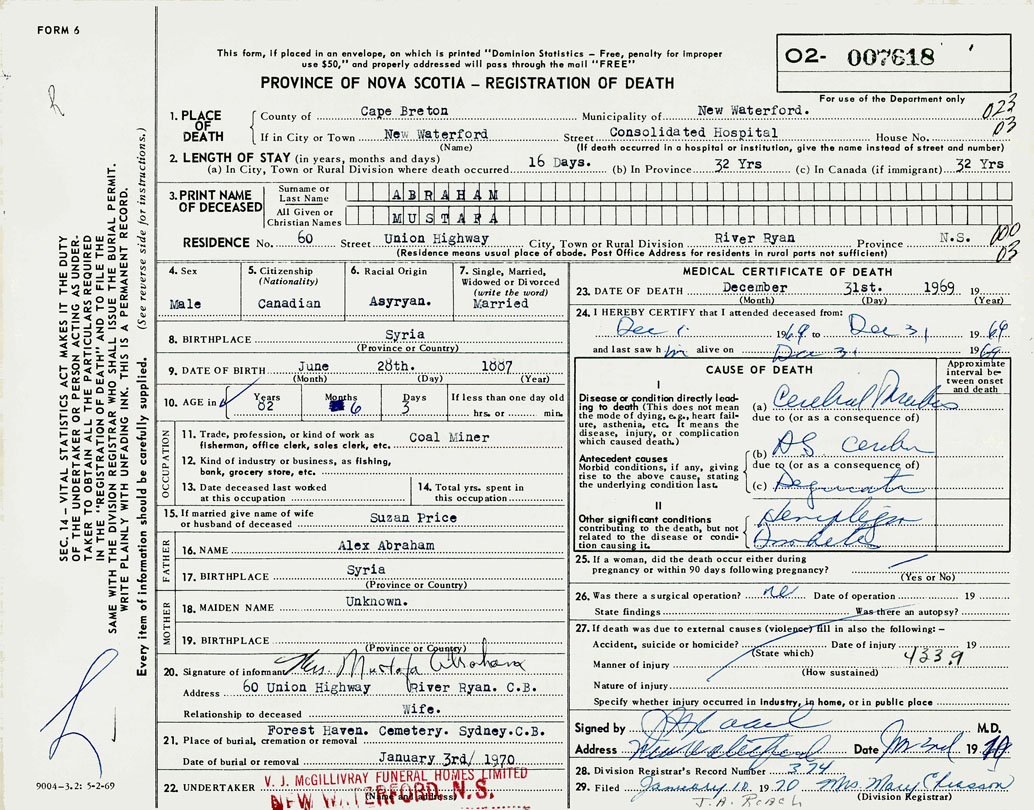 FORM 6
This form, if placed in an envelope, on which is printed "Dominion Statistics – Free, penalty for improper
use $50," and properly addressed will pass through the mail "FREE"
PROVINCE OF NOVA SCOTIA – REGISTRATION OF DEATH
02- 007618
For use of the Department only
023
03
1. PLACE OF DEATH
County of Cape Breton Municipality of New Waterford.
If in City or Town New Waterford Street Consolidated Hospital House No.
(Name) (If death occurred in a hospital or institution, give the name instead of street and number)
2. LENGTH OF STAY (in years, months and days)
(a) In City, Town or Rural Division where death occurred 16 Days. (b) In Province 32 Yrs (c) In Canada (if immigrant) 32 Yrs
3. PRINT NAME OF DECEASED
Surname or Last Name ABRAHAM
All Given or Christian Names MUSTAFA
RESIDENCE No. 60 Street Union Highway City, Town or Rural Division River Ryan Province N.S.
(Residence means usual place of abode. Post Office Address for residents in rural parts not sufficient)
000
03
4. Sex Male
5. Citizenship (Nationality) Canadian
6. Racial Origin Asyryan.
7. Single, Married, Widowed or Divorced (write the word) Married
8. BIRTHPLACE Syria
(Province or Country)
9. DATE OF BIRTH June 28th. 1887
(Month) (Day) (Year)
10. AGE in Years 82 Months 6 Days 3 If less than one day old
hrs. or min.
OCCUPATION
11. Trade, profession, or kind of work as Coal Miner
fisherman, office clerk, sales clerk, etc.
12. Kind of industry or business, as fishing,
bank, grocery store, etc.
13. Date deceased last worked at this occupation
14. Total yrs. spent in this occupation
15. If married give name of wife or husband of deceased Suzan Price
FATHER
16. NAME Alex Abraham
17. BIRTHPLACE Syria
(Province or Country)
MOTHER
18. MAIDEN NAME Unknown.
19. BIRTHPLACE
(Province or Country)
20. Signature of informant Mrs. Mustafa Abraham
Address 60 Union Highway River Ryan. C.B.
Relationship to deceased Wife.
Forest Haven. Cemetery. Sydney.C.B.
21. Place of burial, cremation or removal
Date of burial or removal January 3rd/ 1970
22. UNDERTAKER
(Name and address)
V. J. McGILLIVRAY FUNERAL HOMES LIMITED
NEW WATERFORD, N.S.
MEDICAL CERTIFICATE OF DEATH
23. DATE OF DEATH December 31st. 1969 19
(Month) (Day) (Year)
24. I HEREBY CERTIFY that I attended deceased from:
Dec 1 1969 to Dec 31 1969
and last saw him alive on Dec 31 1969
CAUSE OF DEATH
Approximate interval between onset and death
I
Disease or condition directly leading to death (This does not mean the mode of dying, e.g., heart failure, asthenia, etc. It means the disease, injury, or complication which caused death.)
(a) Cerebral
due to (or as a consequence of)
Antecedent causes
Morbid conditions, if any, giving rise to the above cause, stating the underlying condition last.
(b) AS
due to (or as a consequence of)
(c)
II
Other significant conditions contributing to the death, but not related to the disease or condition causing it.
Hemiplegia
Diabetes
25. If a woman, did the death occur either during
pregnancy or within 90 days following pregnancy?
(Yes or No)
26. Was there a surgical operation? no Date of operation 19
State findings Was there an autopsy?
27. If death was due to external causes (violence) fill in also the following: –
Accident, suicide or homicide? Date of injury 19
(State which)
433.9
Manner of injury
(How sustained)
Nature of injury
Specify whether injury occurred in industry, in home, or in public place
Signed by M.D.
Address New Waterford Date Jan 2nd 1970
28. Division Registrar's Record Number 374
29. Filed January 12 1970 Mrs Mary
(Division Registrar)
J.A. ROACH
SEC. 14 – VITAL STATISTICS ACT MAKES IT THE DUTY
OF THE UNDERTAKER OR PERSON ACTING AS UNDER-
TAKER TO OBTAIN ALL THE PARTICULARS REQUIRED
IN THE "REGISTRATION OF DEATH" AND TO FILE THE
SAME WITH THE DIVISION REGISTRAR WHO SHALL ISSUE THE BURIAL PERMIT.
WRITE PLAINLY WITH UNFADING INK. THIS IS A PERMANENT RECORD.
Every item of information should be carefully supplied. (See reverse side for instructions.)
9004-3.2: 5-2-69